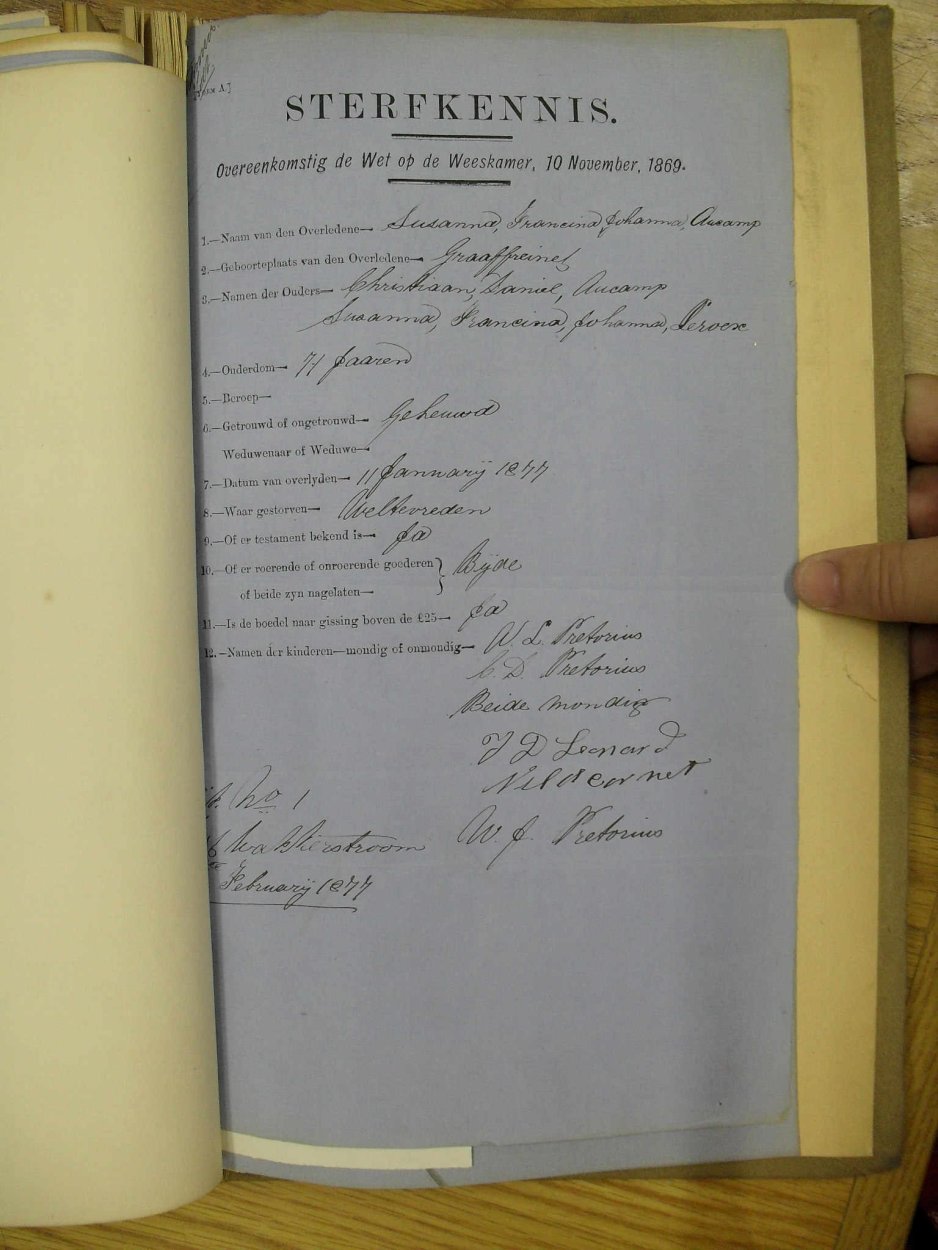 STERFKENNIS.
Overeenkomstig de Wet op de Weeskamer, 10 November, 1869.
1.—Naam van den Overledene— Susanna, Francina, Johanna, Aucamp
2.—Geboorteplaats van den Overledene— Graaffreinet
3.—Namen der Ouders— Christiaan, Daniel, Aucamp
Susanna, Francina, Johanna, Peroex
4.—Ouderdom— 71 Jaaren
5.—Beroep—
6.—Getrouwd of ongetrouwd— Geheuwd
Weduwenaar of Weduwe—
7.—Datum van overlyden— 11 Januarij 1877
8.—Waar gestorven— Weltevreden
9.—Of er testament bekend is— Ja
10.—Of er roerende of onroerende goederen } Bijde
of beide zyn nagelaten—
11.—Is de boedel naar gissing boven de £25— Ja
12.—Namen der kinderen—mondig of onmondig— W. L. Pretorius
C. D. Pretorius
Beide mondig
J D Leonard
Veldcornet
No 1
W. J. Pretorius
Wakkerstroom
Februarij 1877